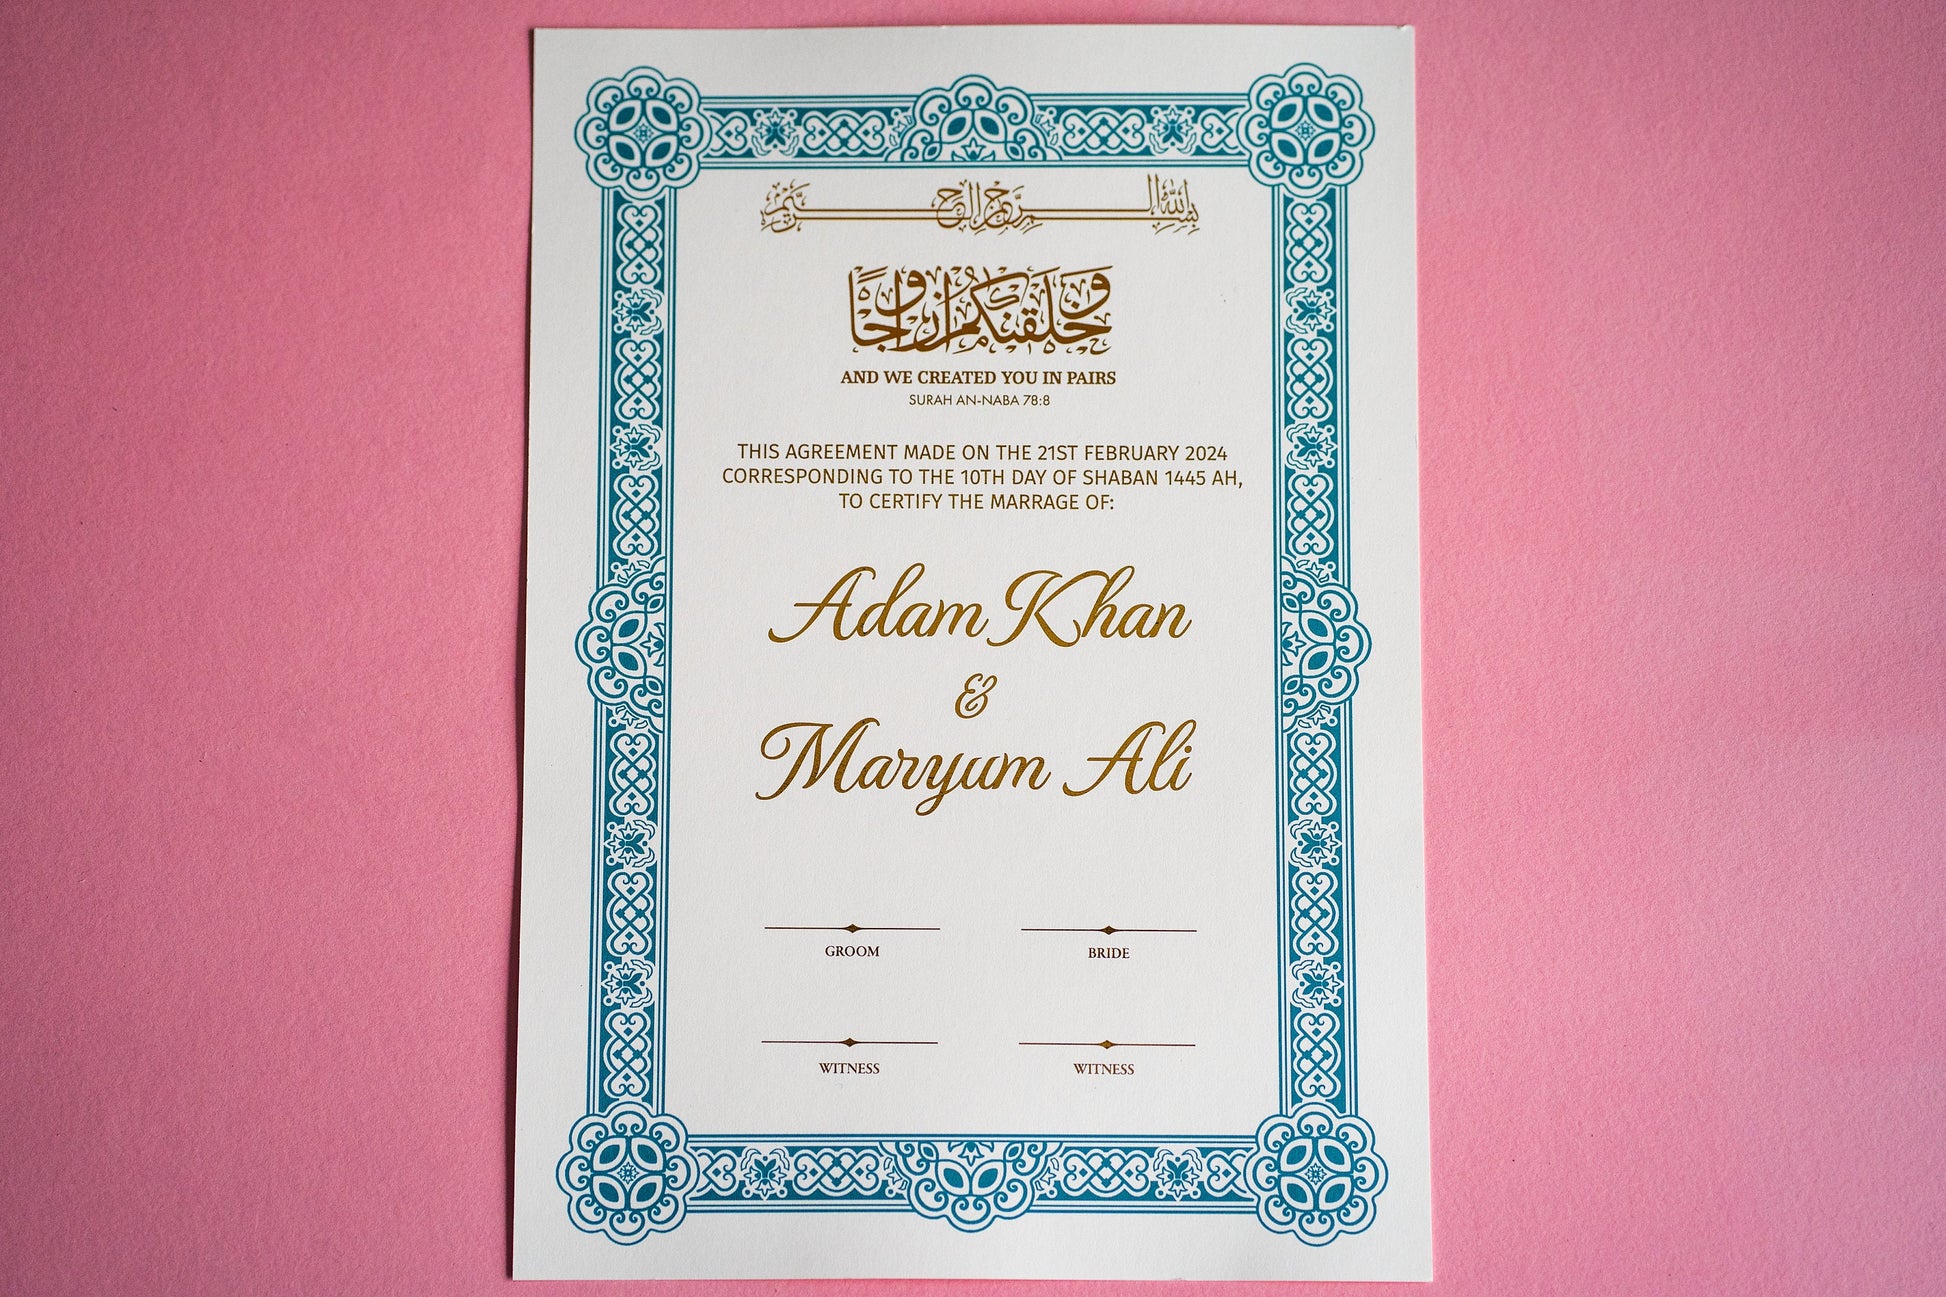 بِسْمِ اللَّهِ الرَّحْمَٰنِ الرَّحِيمِ
وَخَلَقْنَٰكُمْ أَزْوَٰجًا
AND WE CREATED YOU IN PAIRS
SURAH AN-NABA 78:8
THIS AGREEMENT MADE ON THE 21ST FEBRUARY 2024
CORRESPONDING TO THE 10TH DAY OF SHABAN 1445 AH,
TO CERTIFY THE MARRAGE OF:
Adam Khan
&
Maryum Ali
GROOM BRIDE
WITNESS WITNESS